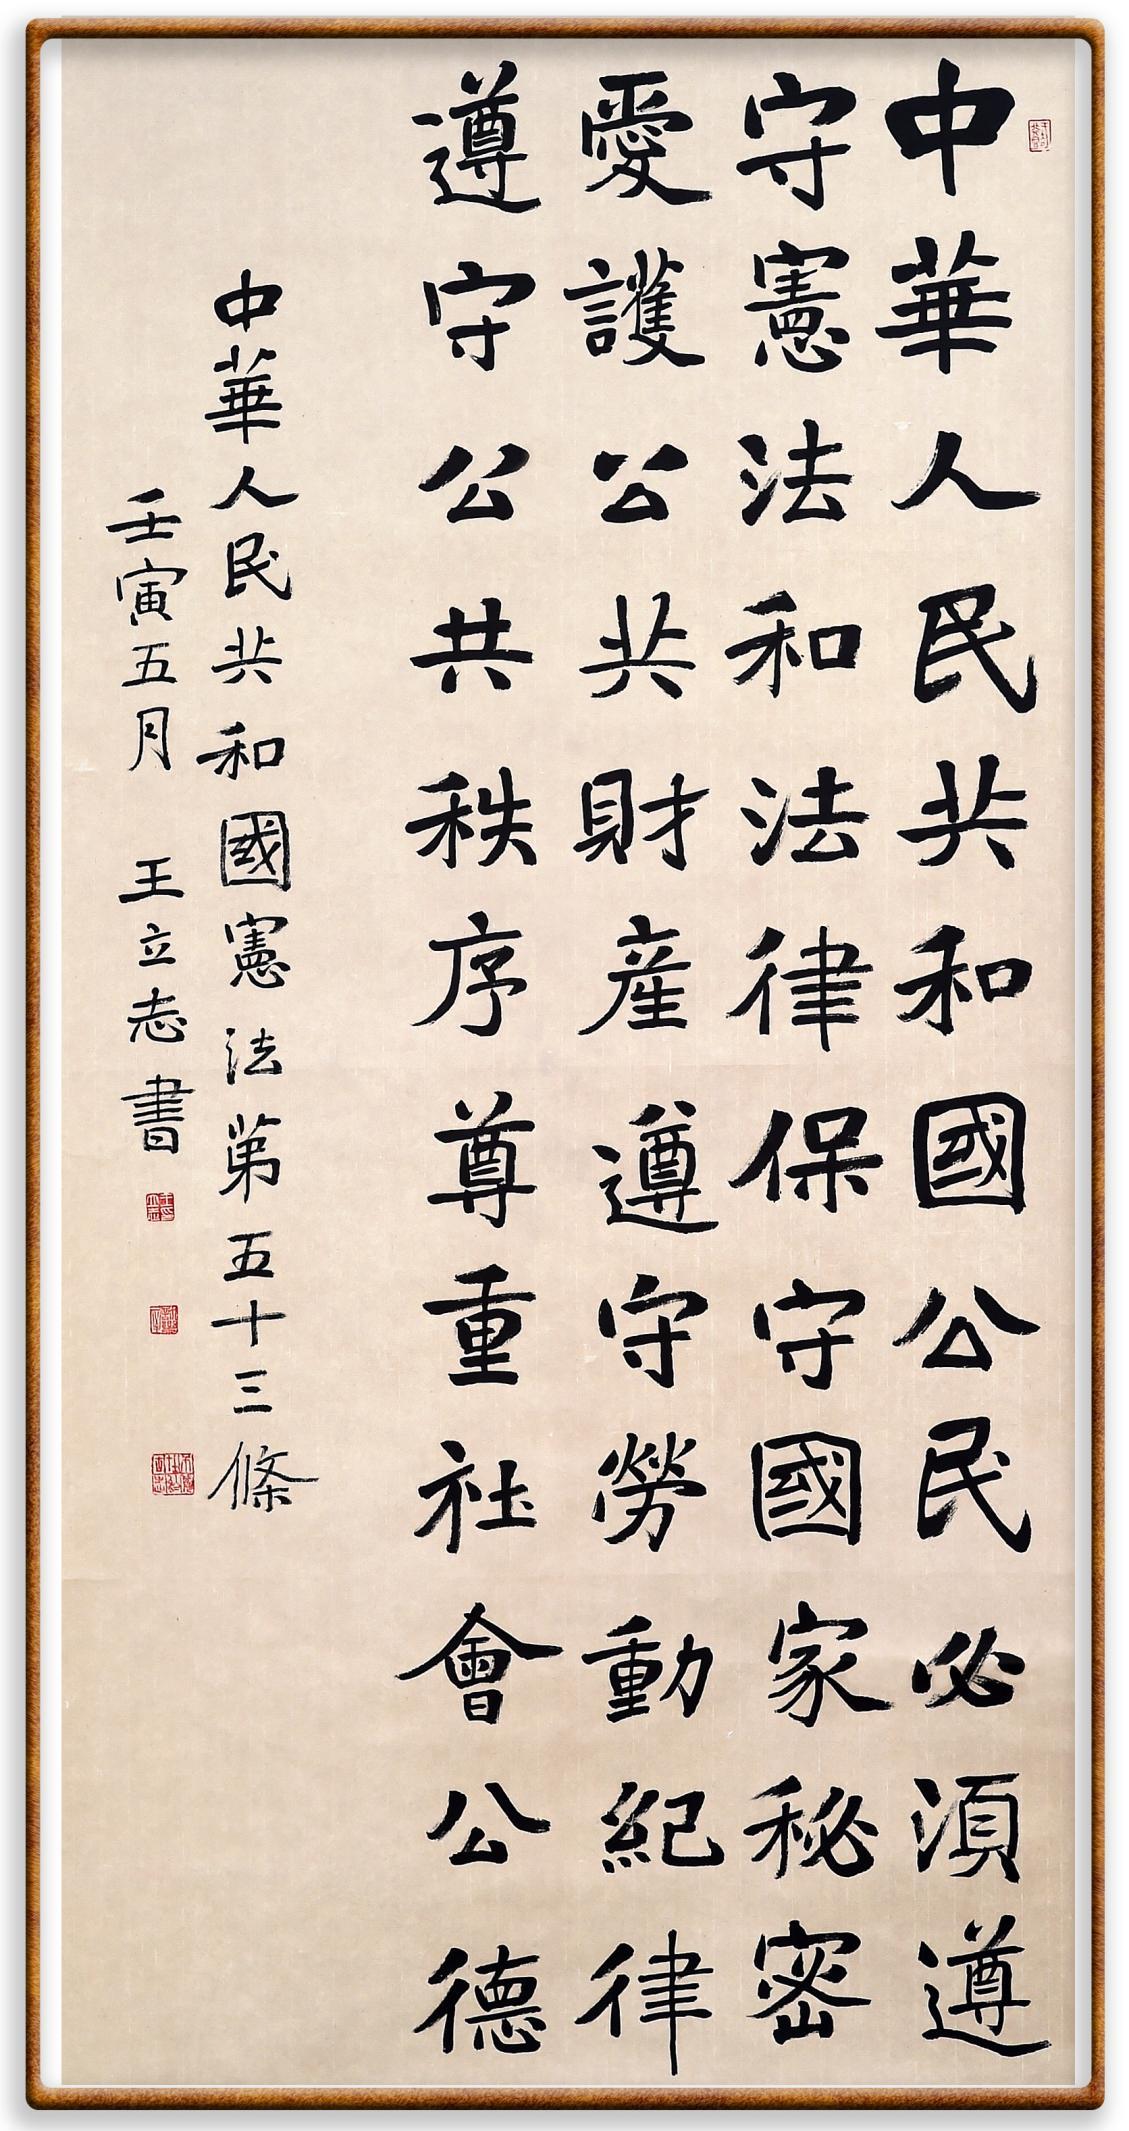 中華人民共和國公民必須遵
守憲法和法律保守國家秘密
愛護公共財產遵守勞動紀律
遵守公共秩序尊重社會公德
中華人民共和國憲法第五十三條
壬寅五月 王立志書